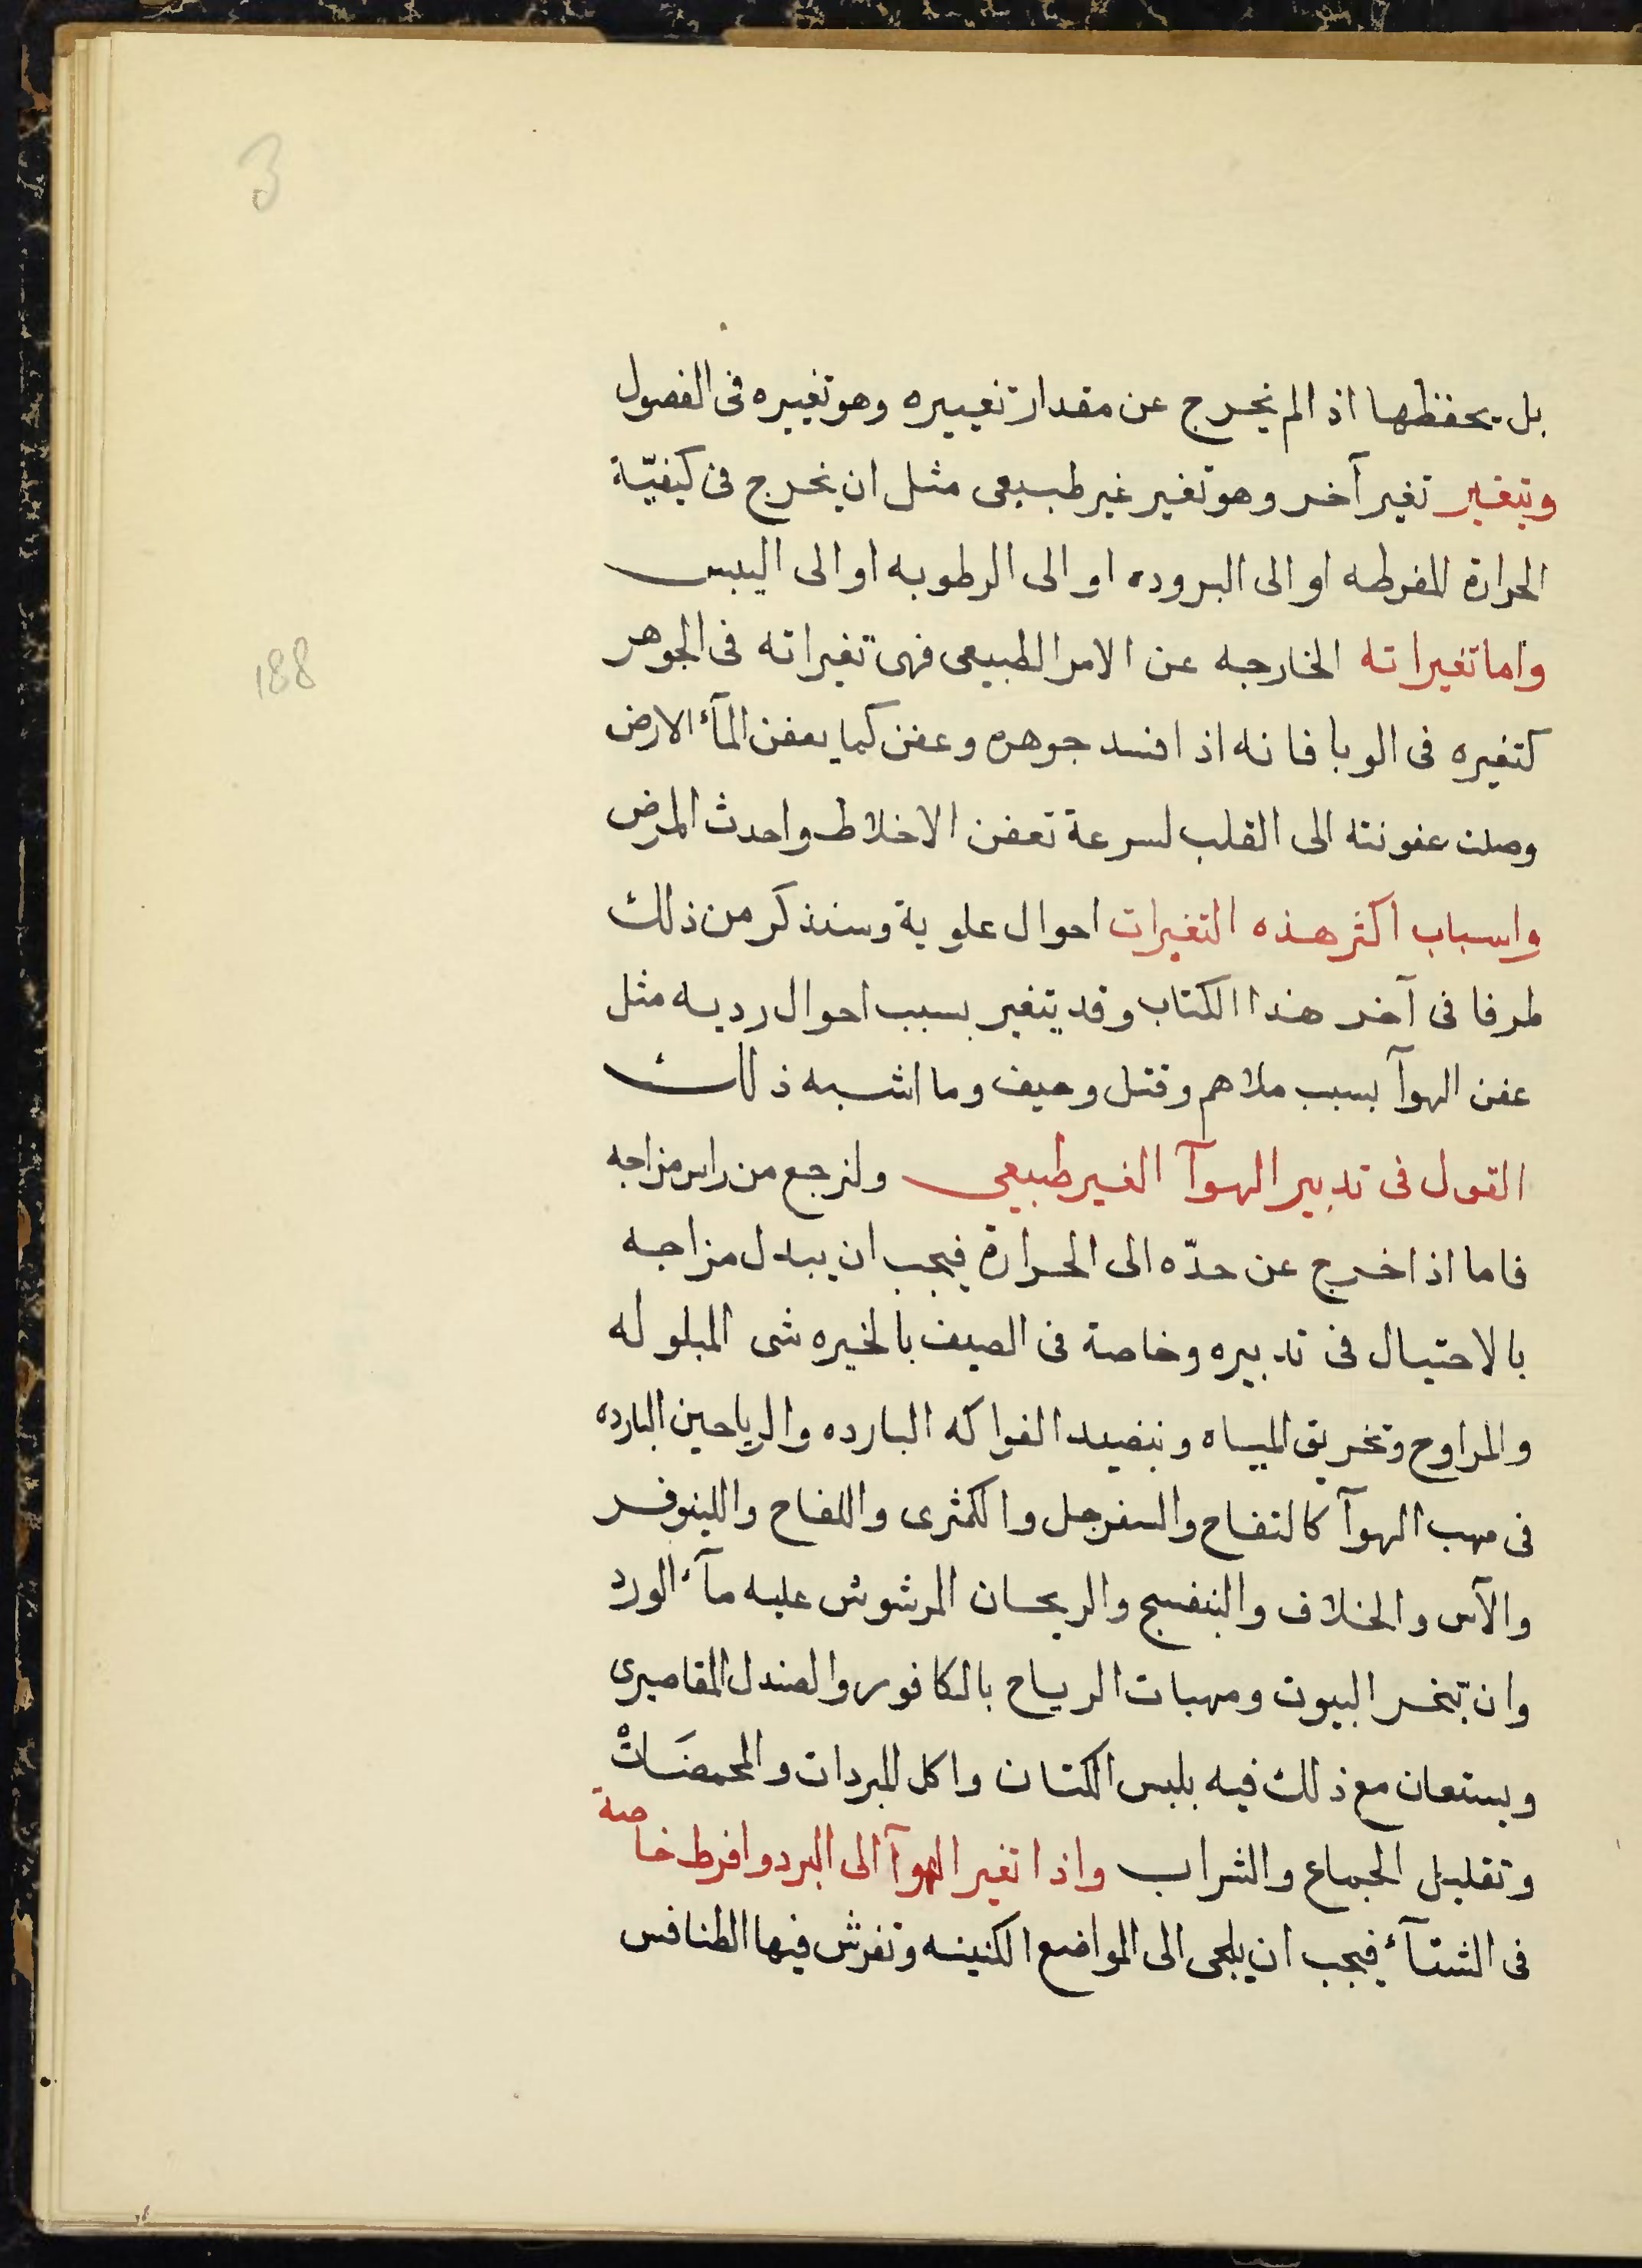 3
بل يحفظها اذا لم يخرج عن مقدار تغييره وهو تغييره فى الفصول
ويتغير تغير آخر وهو تغير غير طبيعى مثل ان يخرج فى كيفيّة
الحرارة المفرطه او الى البروده او الى الرطوبه او الى اليبس
واما تغيراته الخارجه عن الامر الطبيعى فهى تغيراته فى الجوهر
188
كتغيره فى الوبا فانه اذا فسد جوهره وعفن كما يعفن المآء الارض
وصلت عفونته الى القلب لسرعة تعفن الاخلاط واحدث المرض
واسباب اكثر هذه التغيرات احوال علوية وسنذكر من ذلك
طرفا فى آخر هذا الكتاب وقد يتغير بسبب احوال رديه مثل
عفن الهوآ بسبب ملاهم وقتل وجيف وما اشبه ذلك
القول فى تدبير الهوآ الغير طبيعى ولنرجع من راس مزاجه
فاما اذا خرج عن حدّه الى الحرارة فيجب ان يبدل مزاجه
بالاحتيال فى تدبيره وخاصة فى الصيف بالخيره شى المبلوله
والمراوح وتخريق المياه وتنضيد الفواكه البارده والرياحين البارده
فى مهب الهوآ كالتفاح والسفرجل والكمثرى واللفاح واللينوفر
والآس والخلاف والبنفسج والريحان المرشوش عليه مآء الورد
وان تبخر البيوت ومهبات الرياح بالكافور والصندل المقاصيرى
ويستعان مع ذلك فيه بلبس الكتان واكل المبردات والمحمضَاتْ
وتقليل الجماع والشراب واذا تغير الهوآ الى البرد وافرط خاصة
فى الشتآء فيجب ان يلجى الى المواضع الكنينه وتفرش فيها الطنافس